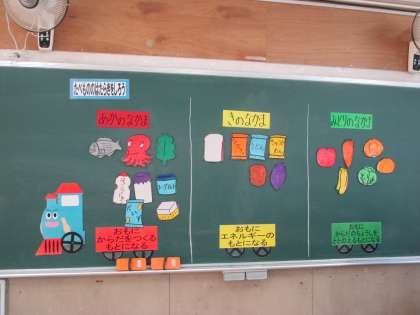 たべもののはたらきをしろう
あかのなかま
きのなかま
みどりのなかま
うどん
ヨーグルト
おもに
からだをつくる
もとになる
おもに
エネルギーの
もとになる
おもに
からだのちょうしを
ととのえるもとになる